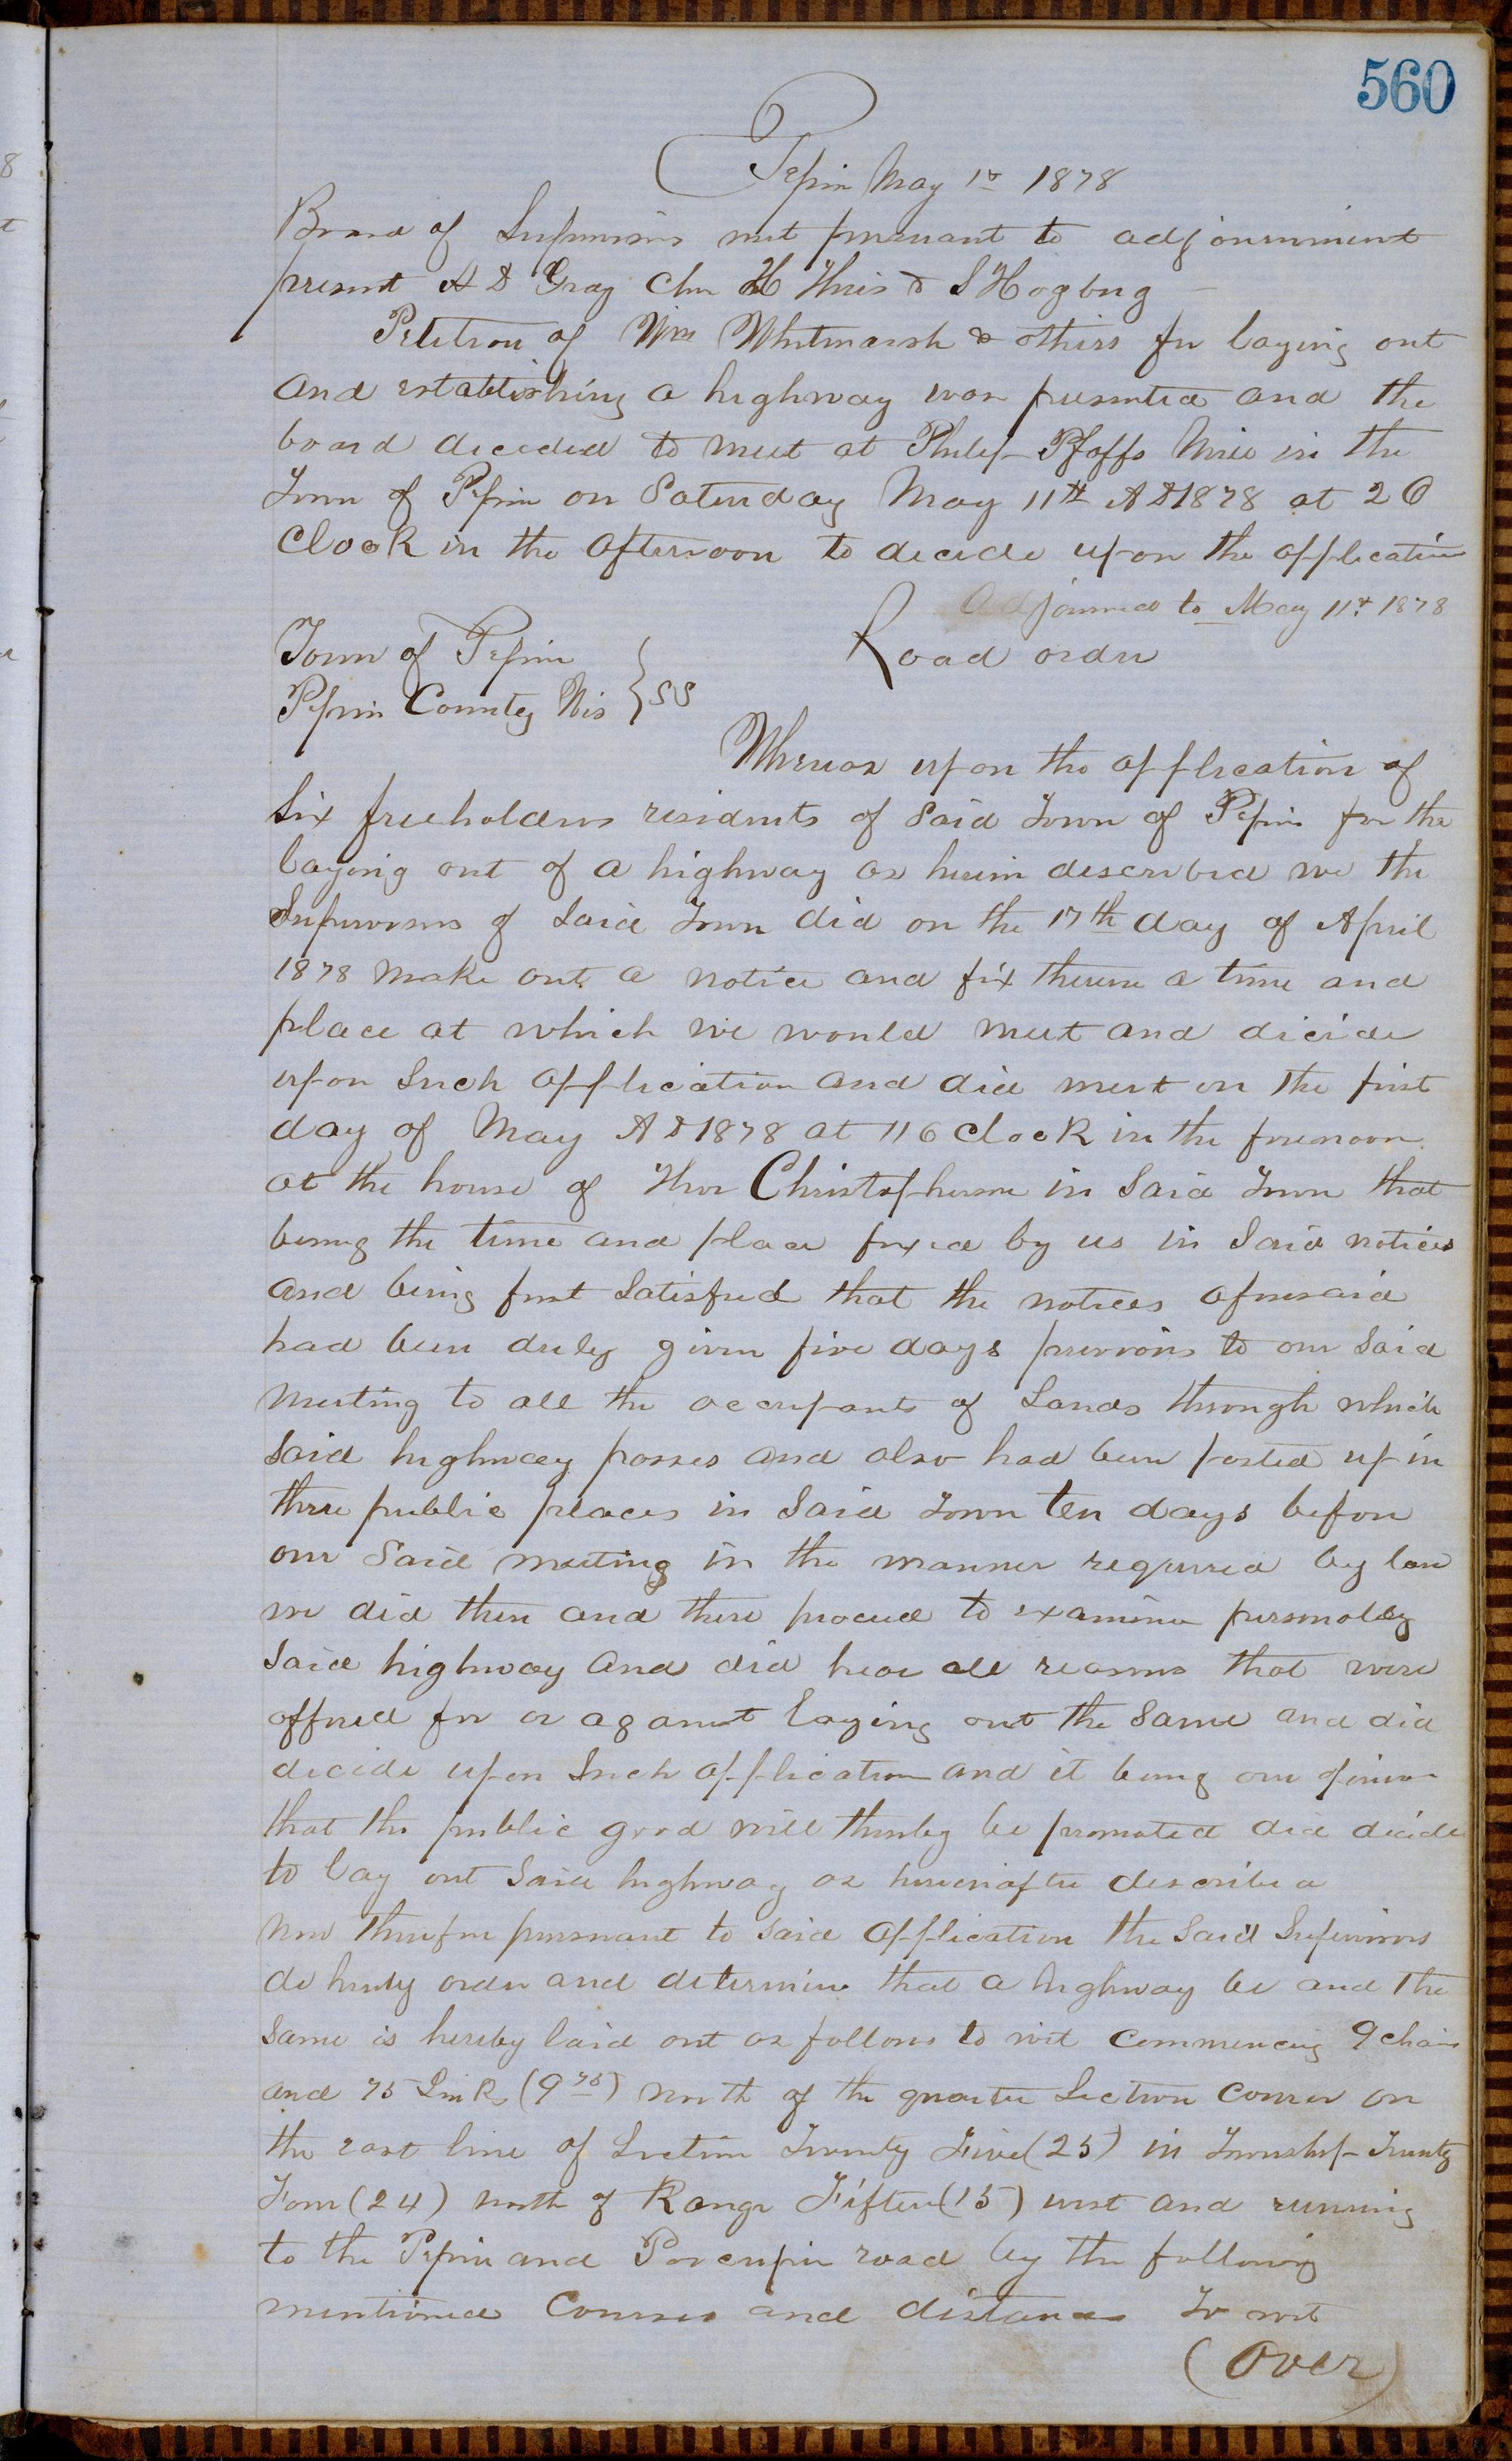 560
Pepin May 1st 1878
Board of Supervisors met pursuant to adjournment
present A D Gray Chm H Thies & S Hogberg
Petition of Wm Whitmarsh & others for laying out
and establishing a highway was presented and the
board decided to meet at Philip Pfaffs Mill in the
Town of Pepin on Saturday May 11th A D 1878 at 2 O
Clock in the afternoon to decide upon the application
Adjourned to May 11th 1878
Road order
Town of Pepin
Pepin County Wis } SS
Whereas upon the application of
Six freeholders residents of Said Town of Pepin for the
laying out of a highway as herein described we the
Supervisors of Said Town did on the 17th day of April
1878 make out a notice and fix therein a time and
place at which we would meet and dicide
upon Such application and did meet on the first
day of May A D 1878 at 11 O clock in the forenoon
at the house of Thor Christopherson in Said Town that
being the time and place fixed by us in Said notices
and being first Satisfied that the notices aforesaid
had been duly given five days previous to our Said
meeting to all the occupants of Lands through which
Said highway passes and also had been posted up in
three public places in Said Town ten days before
our Said meeting in the manner required by law
we did then and there proceed to examine personaley
Said highway and did hear all reasons that were
offered for or against laying out the Same and did
decide upon Such application and it being our opinion
that the public good will thereby be promoted did dicide
to lay out Said highway as hereinafter described
now therefore pursuant to said application the Said Supervisors
do hereby order and determine that a highway be and the
Same is hereby laid out as follows to wit Commencing 9 chains
and 75 Links (9 75) North of the quarter Section Corner on
the east line of Section Twenty Five (25) in Township Twenty
Four (24) north of Range Fifteen (15) west and running
to the Pepin and Porcupin road by the following
mentioned Courses and distances To wit
(Over)